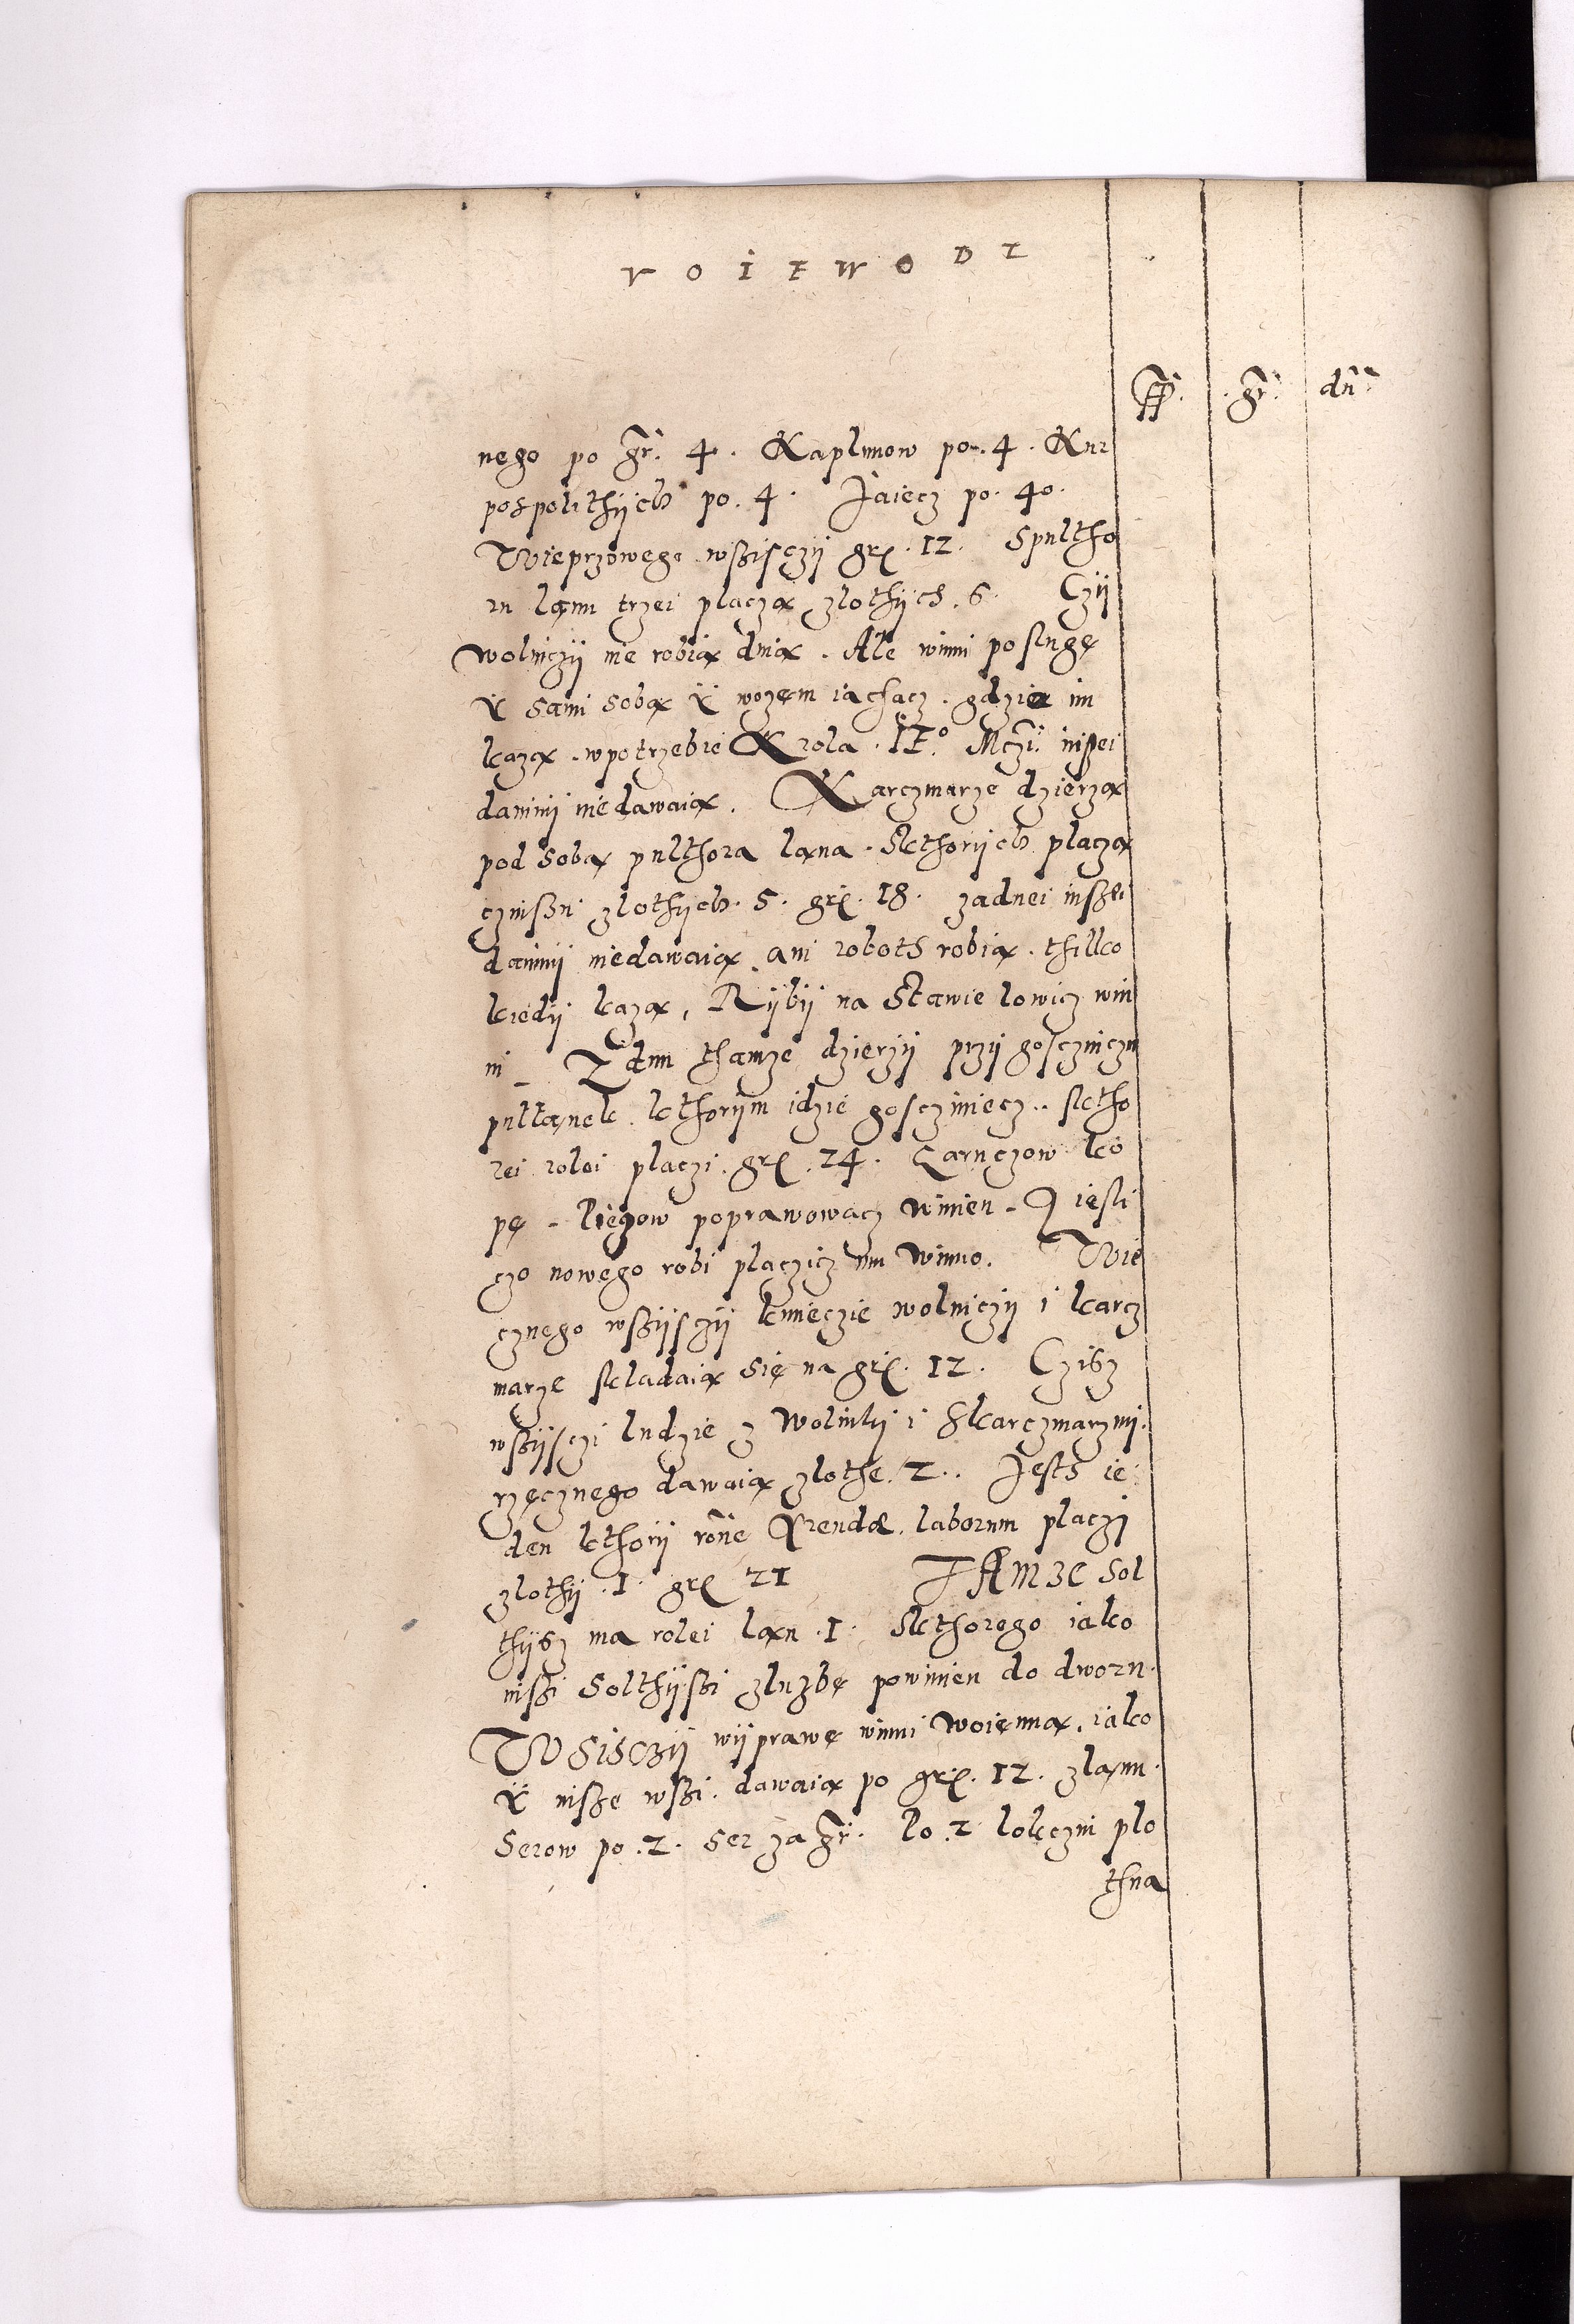 VOIEWODZ
ff. gr. dn.
nego po gr. 4. Kaplunow po. 4. Kur
pospolithÿch po. 4. Jaiecz po. 40.
Wieprzowego wszisczÿ grę. 12. Spultho
ru lanu trzei placzą zlothÿch. 6. Czÿ
wolniczÿ nie robią dnią. Ale winni poslugę
Ÿ sami sobą Ÿ wozem iachacz. gdzie im
kazą. wpotrzebie Krola. IE.° Mczi. inszei
daninÿ niedawaią. Karczmarze dzierzą
pod sobą pulthora lana. Skthorÿch placzą
czinszu zlothÿch. 5. grę. 18. zadnei inszei
daninÿ niedawaią. ani roboth robią. thilko
kiedÿ kazą, Rÿbÿ na Stawie lowicz win
ni_ Zdun thamze dzierzÿ przÿ goscziniczu
pullanek. kthorÿm idzie goscziniecz.. sktho
rei rolei placzi. grę. 24. Garnczow ko
pę - liegow poprawowacz winien - J iesli
czo nowego robi placzicz mu winno. Wie
cznego wszÿsczÿ kmieczie wolniczÿ i karcz
marze skladaią się na grę. 12. Czisz
wszÿsczi ludzie z Wolniki i skarczmarzmi.
rzecznego dawaią zlothe. 2.. Jesth ie
den kthorÿ rone Arendæ. laborum placzi
zlothÿ. 1. grę 21 TAMZE Sol
thÿsz ma rolei lan. 1. Skthorego iako
inszi Solthÿszi zluzbę powinien do dworu.
WSISCZÿ wÿprawę winni woienną. iako
Ÿ insze wszi. dawaią po grę. 12. zlanu.
Serow po. 2. ser za gr. lo. 2 lokczni plo
thna